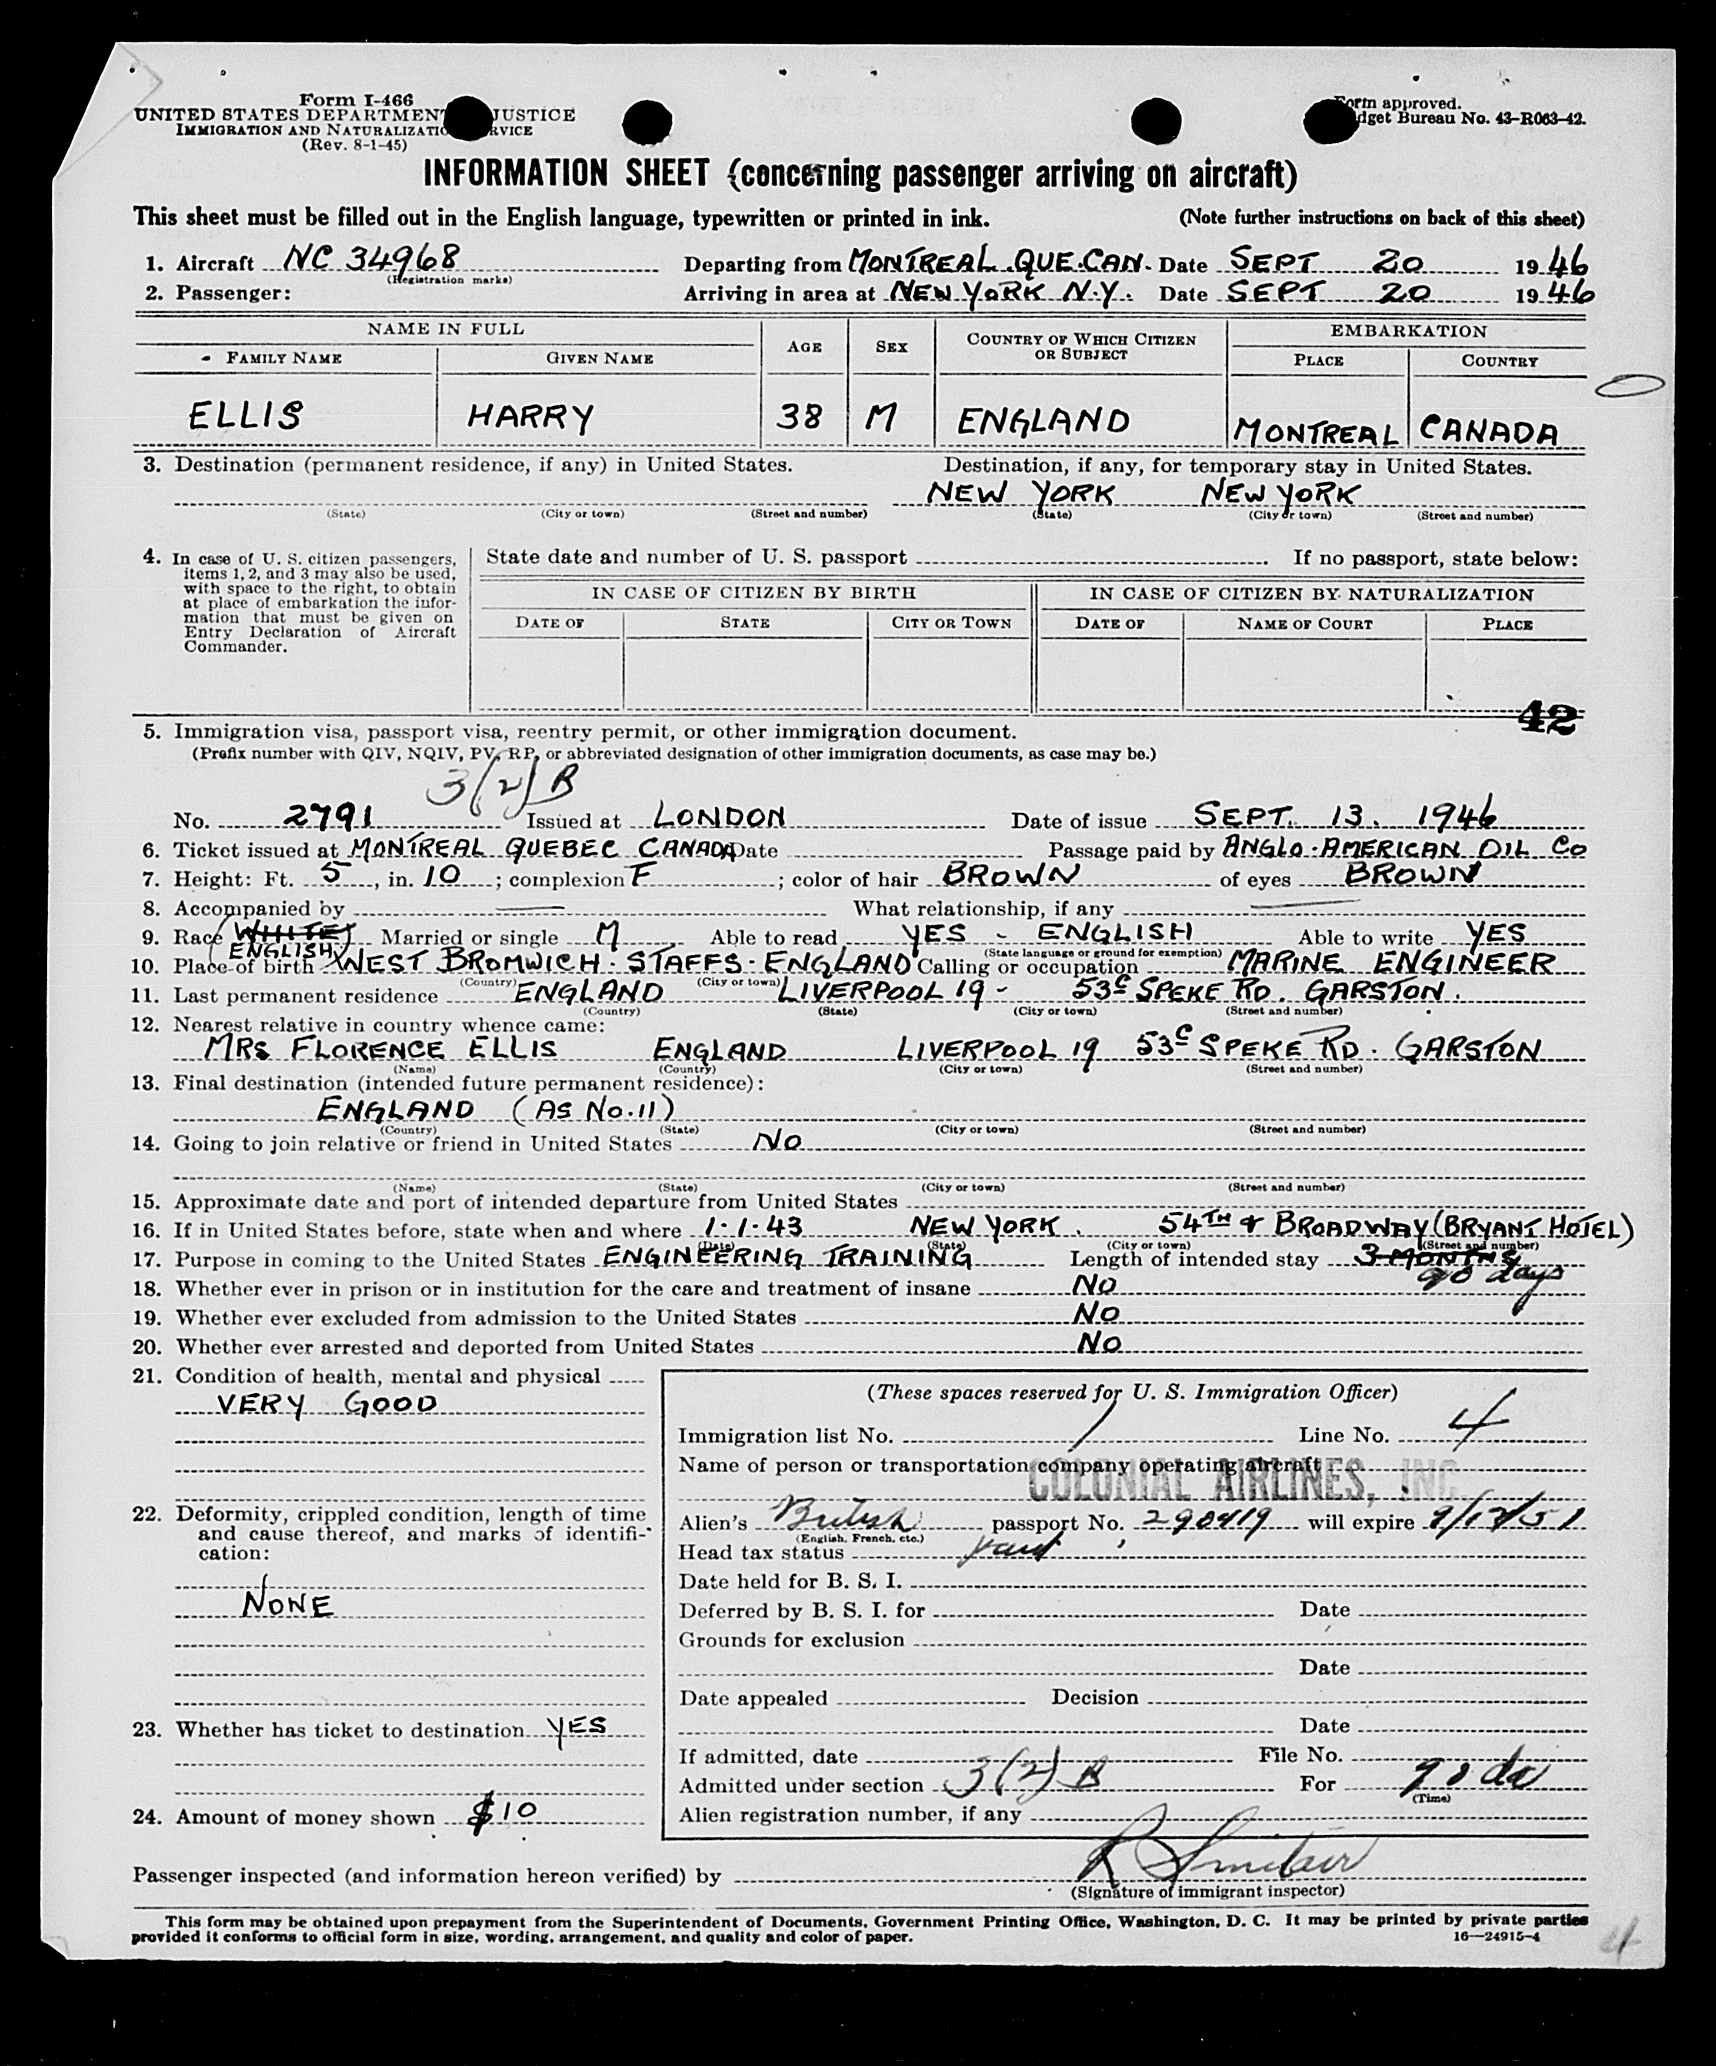 Form I-466
UNITED STATES DEPARTMENT JUSTICE
IMMIGRATION AND NATURALIZATION SERVICE
(Rev. 8-1-45)
Form approved.
Budget Bureau No. 43-R063-42.
INFORMATION SHEET (concerning passenger arriving on aircraft)
This sheet must be filled out in the English language, typewritten or printed in ink. (Note further instructions on back of this sheet)
1. Aircraft NC 34968 Departing from MONTREAL.QUE.CAN. Date SEPT 20 1946
(Registration marks)
2. Passenger: Arriving in area at NEW YORK N.Y. Date SEPT 20 1946
NAME IN FULL AGE SEX COUNTRY OF WHICH CITIZEN OR SUBJECT EMBARKATION
FAMILY NAME GIVEN NAME PLACE COUNTRY
ELLIS HARRY 38 M ENGLAND MONTREAL CANADA
3. Destination (permanent residence, if any) in United States. Destination, if any, for temporary stay in United States.
NEW YORK NEW YORK
(State) (City or town) (Street and number) (State) (City or town) (Street and number)
4. In case of U. S. citizen passengers, items 1, 2, and 3 may also be used, with space to the right, to obtain at place of embarkation the information that must be given on Entry Declaration of Aircraft Commander.
State date and number of U. S. passport If no passport, state below:
IN CASE OF CITIZEN BY BIRTH IN CASE OF CITIZEN BY NATURALIZATION
DATE OF STATE CITY OR TOWN DATE OF NAME OF COURT PLACE
42
5. Immigration visa, passport visa, reentry permit, or other immigration document.
(Prefix number with QIV, NQIV, PV, RP, or abbreviated designation of other immigration documents, as case may be.)
3(2)B
No. 2791 Issued at LONDON Date of issue SEPT. 13. 1946
6. Ticket issued at MONTREAL QUEBEC CANADA Date Passage paid by ANGLO-AMERICAN OIL CO
7. Height: Ft. 5, in. 10; complexion F; color of hair BROWN of eyes BROWN
8. Accompanied by — What relationship, if any —
9. Race (WHITE) Married or single M Able to read YES - ENGLISH Able to write YES
ENGLISH (State language or ground for exemption)
10. Place of birth WEST BROMWICH. STAFFS. ENGLAND Calling or occupation MARINE ENGINEER
(Country) (City or town)
11. Last permanent residence ENGLAND LIVERPOOL 19 - 53C SPEKE RD. GARSTON.
(Country) (State) (City or town) (Street and number)
12. Nearest relative in country whence came:
MRS FLORENCE ELLIS ENGLAND LIVERPOOL 19 53C SPEKE RD. GARSTON
(Name) (Country) (City or town) (Street and number)
13. Final destination (intended future permanent residence):
ENGLAND (AS NO.11)
(Country) (State) (City or town) (Street and number)
14. Going to join relative or friend in United States NO
(Name) (State) (City or town) (Street and number)
15. Approximate date and port of intended departure from United States
16. If in United States before, state when and where 1.1.43 NEW YORK. 54TH & BROADWAY (BRYANT HOTEL)
(Date) (State) (City or town) (Street and number)
17. Purpose in coming to the United States ENGINEERING TRAINING Length of intended stay 3 MONTHS
90 days
18. Whether ever in prison or in institution for the care and treatment of insane NO
19. Whether ever excluded from admission to the United States NO
20. Whether ever arrested and deported from United States NO
21. Condition of health, mental and physical
VERY GOOD
22. Deformity, crippled condition, length of time
and cause thereof, and marks of identifi-
cation:
NONE
23. Whether has ticket to destination YES
24. Amount of money shown $10
(These spaces reserved for U. S. Immigration Officer)
Immigration list No. 1 Line No. 4
Name of person or transportation company operating aircraft
COLONIAL AIRLINES, INC
Alien's British passport No. 290419 will expire 9/12/51
(English, French, etc.)
Head tax status
Date held for B. S. I.
Deferred by B. S. I. for Date
Grounds for exclusion
Date
Date appealed Decision
Date
If admitted, date File No.
Admitted under section 3(2)B For 90 da
(Time)
Alien registration number, if any
Passenger inspected (and information hereon verified) by R Sinclair
(Signature of immigrant inspector)
This form may be obtained upon prepayment from the Superintendent of Documents, Government Printing Office, Washington, D. C. It may be printed by private parties
provided it conforms to official form in size, wording, arrangement, and quality and color of paper. 16—24915-4
4